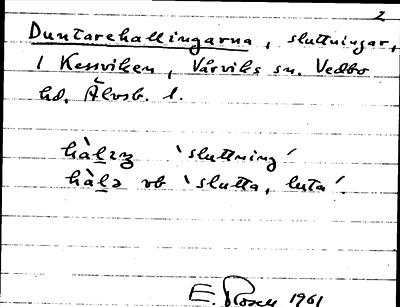 2
Duntarehallingarna, sluttningar,
i Kesviken, Vårviks sn. Vedbo
hd. Älvsb. l.
hàlıŋ 'sluttning'
hàlə vb 'slutta, luta'.
E. Rosell 1961